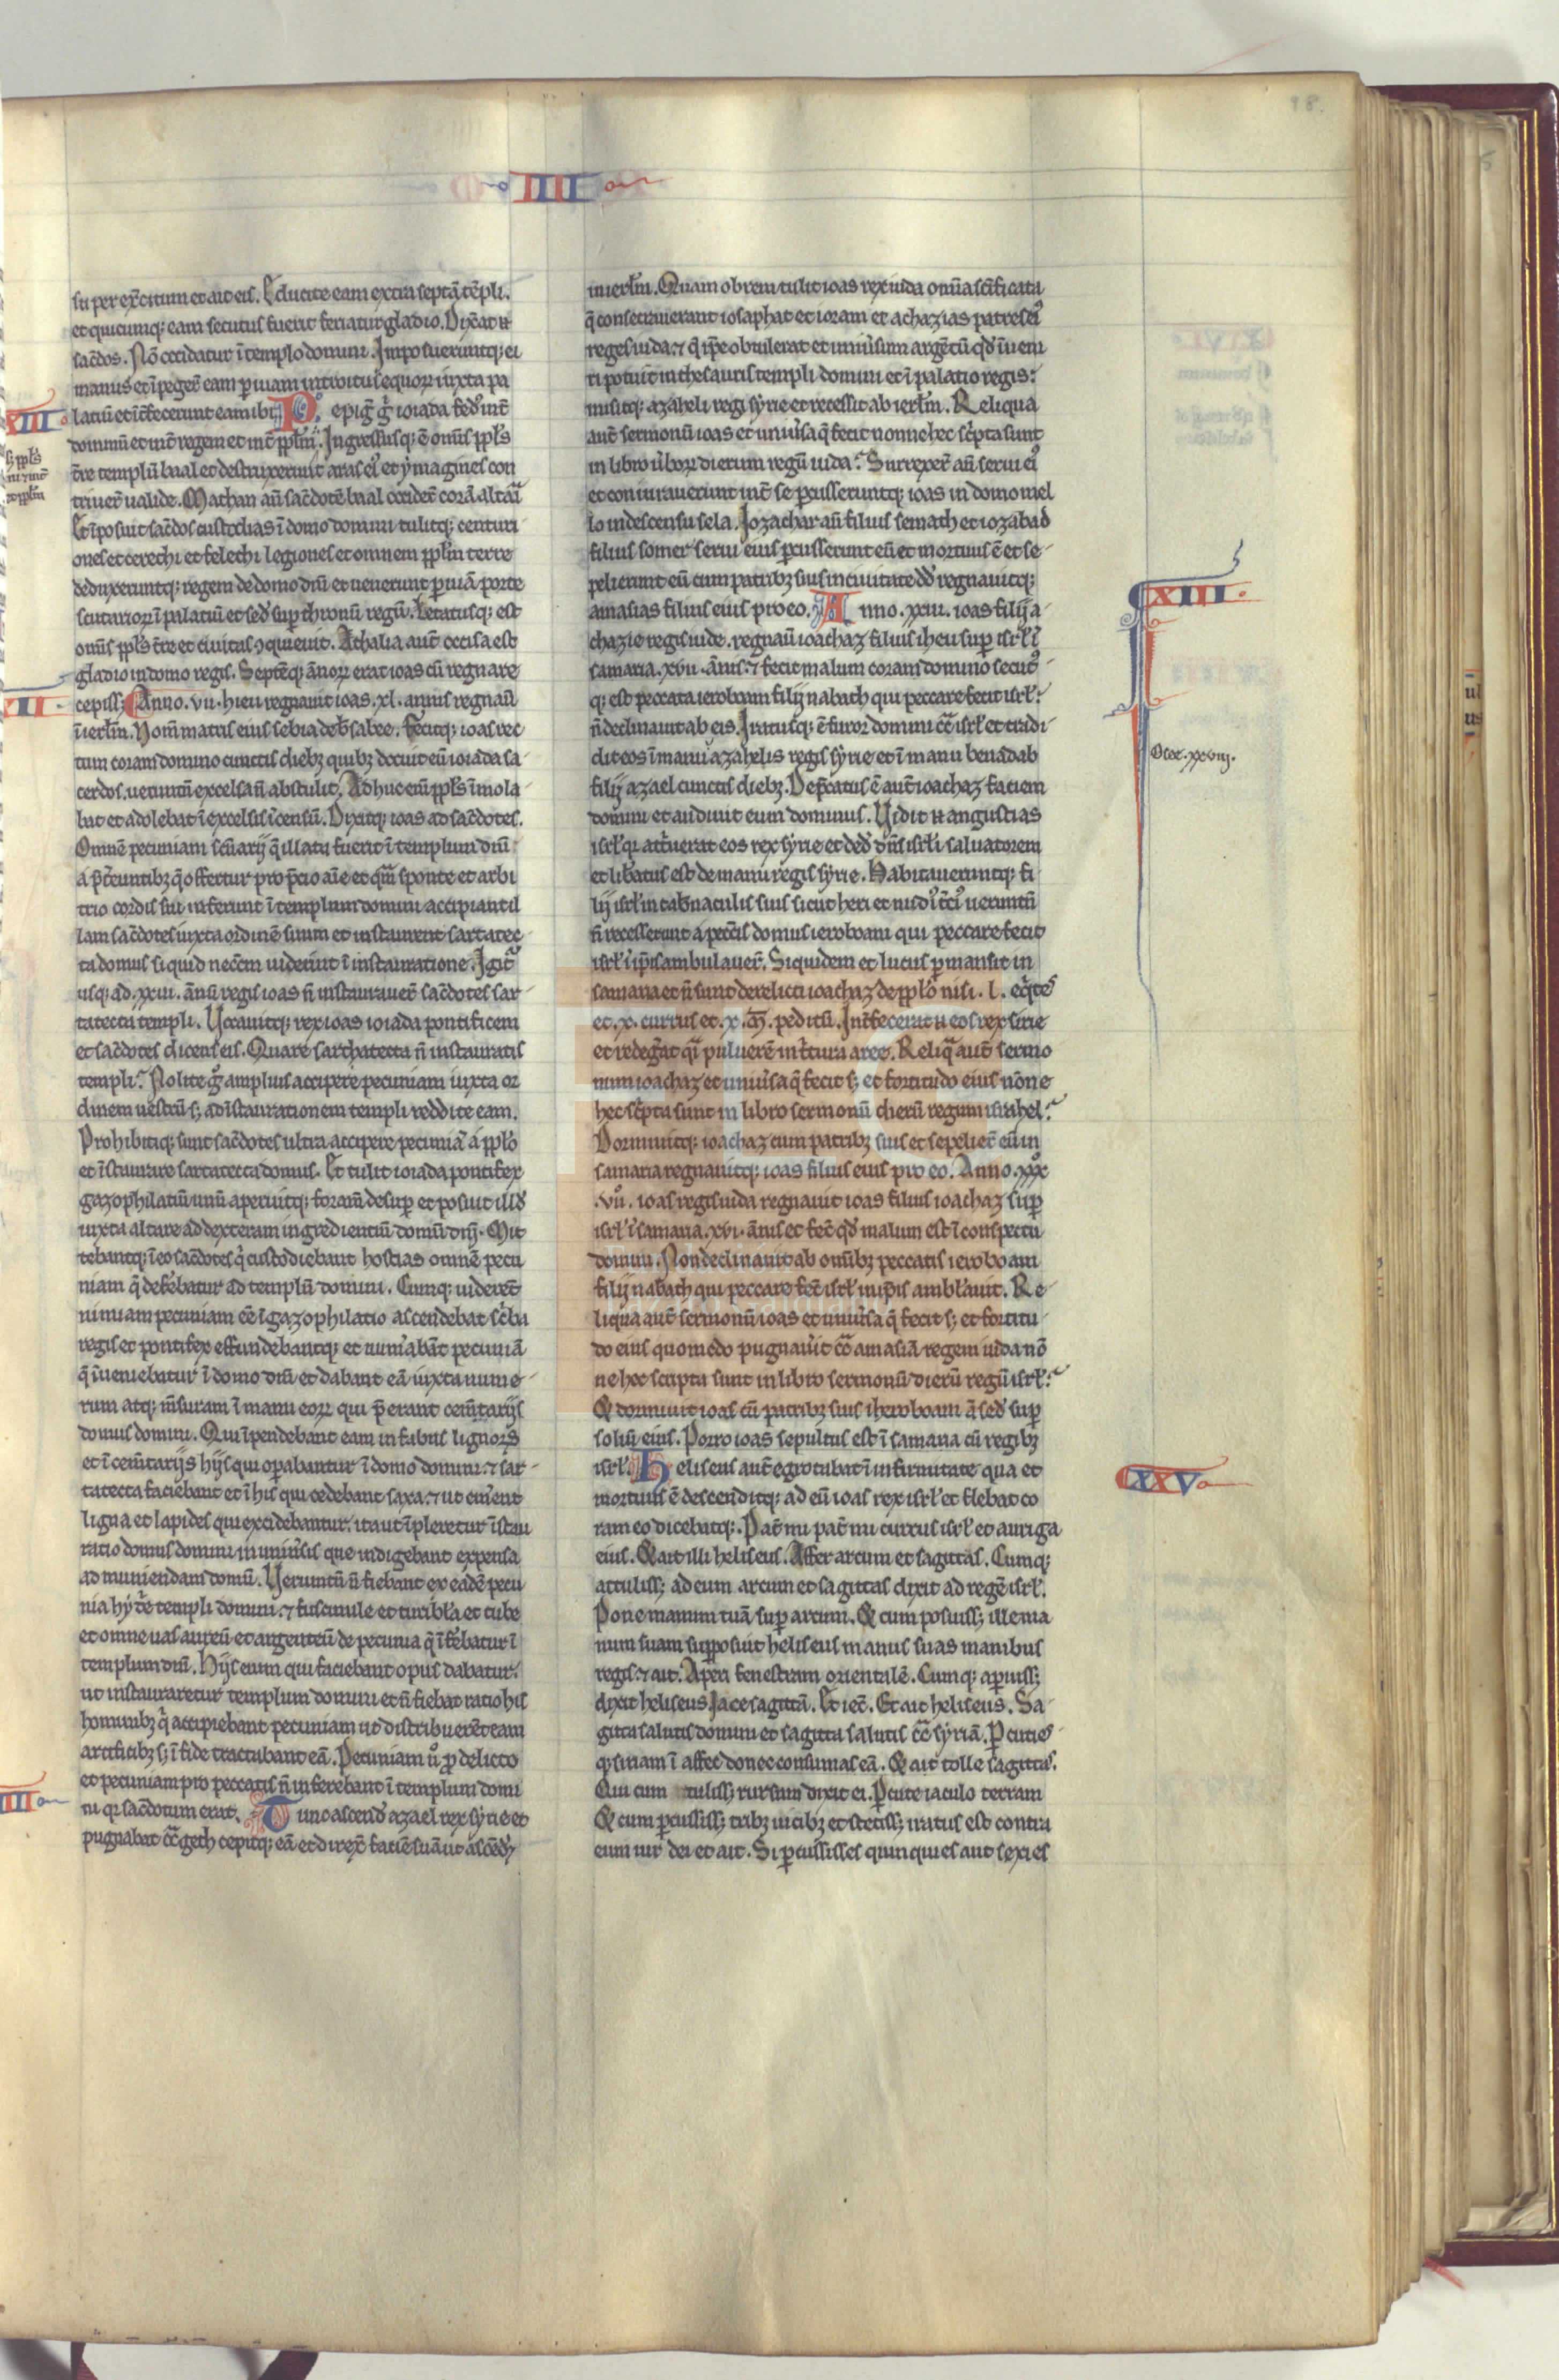 IIII
su per ex̄citum et ait eis. Educite eam extra septā tēpli.
et quicumq; eam secutus fuerit feriatur gladio. Dix̄at n̄
sac̄dos. Nō occidatur ī templo domini. Imposueruntq; ei
manus et īpeger̄ eam ꝑ uiam introitus equoꝝ iuxta pa
XIII
latiū et īt̄fecerunt eam ibi. Pepiḡ ḡ ioiada fed̄ int̄
dominū et int̄ regem et int̄ ppl̄m. Ingressusq; ē omīs ppl̄s
t̄re templū baal et destruxerunt aras ei᷒ et ymagines con
triuer̄ ualide. Mathan aū sac̄dotē baal occider̄ corā altari
Et īposuit sac̄dos custodias ī domo domini tulitq; centuri
ones et cerethi et felethi legiones et omnem ppl̄m terre
deduxeruntq; regem de domo dn̄i et uenerunt ꝑ uiā porte
scutarioꝝ ī palatiū et sed̄ suꝑ thronū regū. Letatusq; est
omīs ppl̄s t̄re et ciuitas ꝯquieuit. Athalia aut̄ occisa est
gladio in domo regis. Septēq; ānoꝝ erat ioas cū regnare
II
cepiss; Anno. vii. hieu regnauit ioas. xl. annis regnaū
ī ierl̄m. Nom̄ matris eius sebia de b̄sabee. Fecitq; ioas rec
tum coram domino cunctis dieb; quib; docuit eū ioiada sa
cerdos. uerumtn̄ excelsa n̄ abstulit. Adhuc eni̅ ppl̄s īmola
bat et adolebat ī excelsis īcensū. Dixitq; ioas ad sac̄dotes.
Omnē pecuniam sc̄oꝝ q̄ illata fuerit ī templum dn̄i
a p̄t̄euntib; q̄ offertur pro p̄cio aīe et quā sponte et arbi
trio cordis sui inferunt ī templum domini accipiant il
lam sac̄dotes iuxta ordinē suum et instaurent sartatec
ta domus si quid nec̄m uiderint ī instauratione. Igit᷑
usq; ad. xxiii. ānū regis ioas n̄ instaurauer̄ sac̄dotes sar
tatecta templi. Uocauitq; rex ioas ioiada pontificem
et sac̄dotes dicens eis. Quare sarthatecta n̄ instauratis
templi. Nolite ḡ amplius accipere pecuniam iuxta or
dinem uestrū s; ad īstaurationem templi reddite eam.
Prohibitiq; sunt sac̄dotes ultra accipere pecuniā a ppl̄o
et īstaurare sartatecta domus. Et tulit ioiada pontifex
gazophilatiū unū aperuitq; foram̄ desuꝑ et posuit illd̄
iuxta altare ad dexteram ingredientiū domū dn̄i. Mit
tebantq; ī eo sac̄dotes q̄ custodiebant hostias omnē pecu
niam q̄ defebatur ad templū domini. Cumq; uiderent̄
nimiam pecuniam eē ī gazophilatio ascendebat sc̄ba
regis et pontifex effundebantq; et num̄abāt pecuniā
q̄ īueniebatur ī domo dn̄i et dabant eā iuxta nume
rum atq; m̄suram ī manu eoꝝ qui p̄erant cem̄tarijs
domus domini. Qui īpendebant eam in fabris lignoꝝ
et ī cem̄tarijs hijs qui oꝑabantur ī domo domini. ⁊ sar
tatecta faciebant et ī his qui cedebant saxa. ⁊ ut em̄ent
ligna et lapides qui excidebantur. ita ut īpleretur īstau
ratio domus domini in uniūsis que indigebant expensa
ad muniendam domū. Uerumtn̄ n̄ fiebant ex eadē pecu
nia hyd̄rie templi domini. ⁊ fuscinule et turibl̄a et tube
et omne uas aureū et argenteū de pecunia q̄ īfebatur ī
templum dn̄i. Hijs enim qui faciebant opus dabatur.
ut instauraretur templum domini et n̄ fiebat ratio his
hominib; q̄ accipiebant pecuniam ut distribuerēt eam
artificib; s; ī fide tractabant eā. Pecuniam ū ꝓ delicto
et pecuniam pro peccatis n̄ inferebant ī templum domi
IIII
ni q᷑ sac̄dotum erat. Tunc ascend̄ azael rex syrie et
pugnabat cc̄a geth cepitq; eā et direx̄ faciē suā ut ascēd̄et
in ierl̄m. Quam obrem tulit ioas rex iuda omīa sc̄ificata
q̄ consecrauerant iosaphat et ioram et achazias patres ei᷒
reges iuda. ⁊ q̄ ip̄e obtulerat et uniūsum argētū qd̄ īueni
ri potuit in thesauris templi domini et ī palatio regis.
misitq; azaheli regi syrie et recessit ab ierl̄m. Reliqua
aut̄ sermonū ioas et uniūsa q̄ fecit nonne hec sc̄pta sunt
in libro ūboꝝ dierum regū iuda. Surrexer̄ aū serui ei᷒
et coniurauerunt int̄ se ꝑcusseruntq; ioas in domo mel
lo in descensu sela. Iozachar aū filius semath et iozabad
filius somer serui eius ꝑcusserunt eū et mortuus ē et se
pelierunt eū cum patrib; suis in ciuitate dd̄ regnauitq;
amasias filius eius pro eo. XIII
Anno. xxiii. ioas filij a
chazie regis iude. regnaū ioachaz filius iheu suꝑ isrl̄ ī
samaria. xvii. ānis. ⁊ fecit malum coram domino secut᷒
q; est peccata ieroboam filij nabath qui peccare fecit isrl̄.
n̄ declinauit ab eis. Iratusq; ē furor domini cc̄a isrl̄ et tradi
dit eos ī manu azahelis regis syrie et ī manu benadab
Otee. xxviij.
filij azael cunctis dieb;. Dep̄catus ē aut̄ ioachaz faciem
domini et audiuit eum dominus. Uidit n̄ angustias
isrl̄ q᷑ att̄uerat eos rex syrie et ded̄ dn̄s isrl̄i saluatorem
et lib̄atus est de manu regis syrie. Habitaueruntq; fi
lij isrl̄ in tab̄naculis suis sicut heri et nudi᷒ t̄ci᷒ uerumtn̄
n̄ recesserunt a pecc̄is domus ieroboam qui peccare fecit
isrl̄ ī ip̄is ambulauer̄. Siquidem et lucus ꝑmansit in
samaria et n̄ sunt derelicti ioachaz de ppl̄o nisi. l. eq̄tes
et. x. currus et. x. m̄. peditū. Int̄fecerat n̄ eos rex sirie
et redeḡat q̄i puluerē in t̄tura aree. Reliq̄ aut̄ sermo
num ioachaz et uniūsa q̄ fecit s; et fortitudo eius nōne
hec sc̄pta sunt in libro sermonū dierū regum israhel.
Dormiuitq; ioachaz cum patrib; suis et sepelier̄ eū in
samaria regnauitq; ioas filius eius pro eo. Anno. xxx
.vii. ioas regis iuda regnauit ioas filius ioachaz suꝑ
isrl̄ ī samaria. xvi. ānis et fec̄ qd̄ malum est ī conspectu
domini. Non declinauit ab omīb; peccatis ieroboam
filij nabath qui peccare fec̄ isrl̄ in ip̄is ambl̄auit. Re
liqua aut̄ sermonū ioas et uniūsa q̄ fecit s; et fortitu
do eius quomodo pugnau̅it cc̄a amasiā regem iuda nō
ne hec scripta sunt in libro sermonū dierū regū isrl̄.
Et dormiuit ioas cū patrib; suis iheroboam ā sed̄ suꝑ
soliū eius. Porro ioas sepultus est ī samaria cū regib;
XXV
isrl̄. Heliseus aut̄ egrotabat ī infirmitate qua et
mortuus ē descenditq; ad eū ioas rex isrl̄ et flebat co
ram eo dicebatq;. Pat̄ mi pat̄ mi currus isrl̄ et auriga
eius. Et ait illi heliseus. Affer arcum et sagittas. Cumq;
attuliss; ad eum arcum et sagittas dixit ad regē isrl̄.
Pone manum tuā suꝑ arcum. Et cum posuiss; ille ma
num suam supposuit heliseus manus suas manibus
regis ⁊ ait. Aperi fenestram orientalē. Cumq; aꝑuiss;
dixit heliseus Iace sagittā. Et iec̄. Et ait heliseus. Sa
gitta salutis domini et sagitta salutis cc̄a syriā. Pcuties
q; siriam ī affec donec consumas eā. Et ait tolle sagittas.
Qui cum tuliss; rursum dixit ei. Pcute iaculo terram
Et cum ꝑcussiss; trib; uicib; et stetiss; iratus est contra
eum uir dei et ait. Si ꝑcussisses quinquies aut sexies